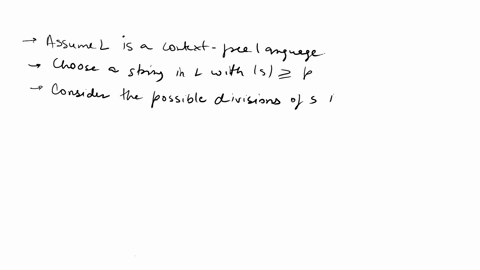 → Assume L is a context-free language.
→ Choose a string in L with |s| ≥ p
→ Consider the possible divisions of s i